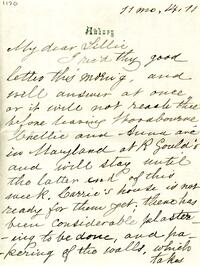 1170
11 mo. 14. 11
Asbury
My dear Lillie
I rec'd thy good
letter this morn'g, and
will answer at once
or it will not reach thee
before leaving
and Anna are
in Maryland at R Gould's
and will stay until
the latter end of this
week. Carrie's house is not
ready for them yet, there has
been considerable plaster-
ing to be done, and pa-
pering of the walls, which
takes